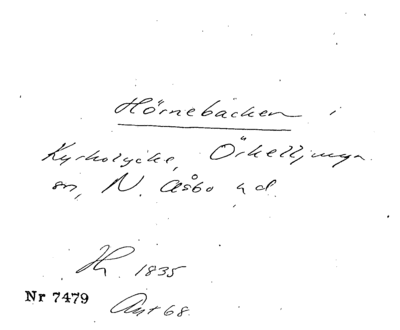 Hörnebäcken i
Kyrkolycke, Örkelljunga
sn, N. Åsbo hd.
Hk. 1835
Nr 7479
Ant 68.